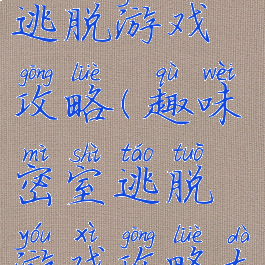 逃脱游戏
gōng lüè qù wèi
攻略(趣味
mì shì táo tuō
密室逃脱
yóu xì gōng lüè dà
游戏攻略大